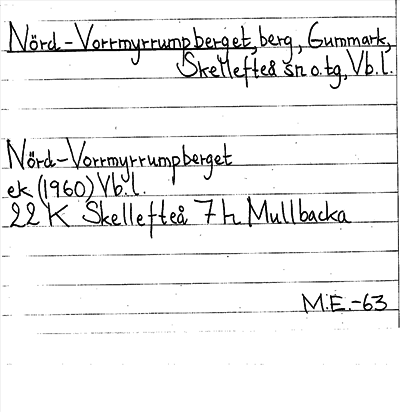 Nörd-Vorrmyrrumpberget, berg, Gummark,
Skellefteå sn o. tg, Vb. l.
Nörd-Vorrmyrrumpberget
ek (1960) Vb. l.
22 K Skellefteå 7 h Mullbacka
M.E.-63